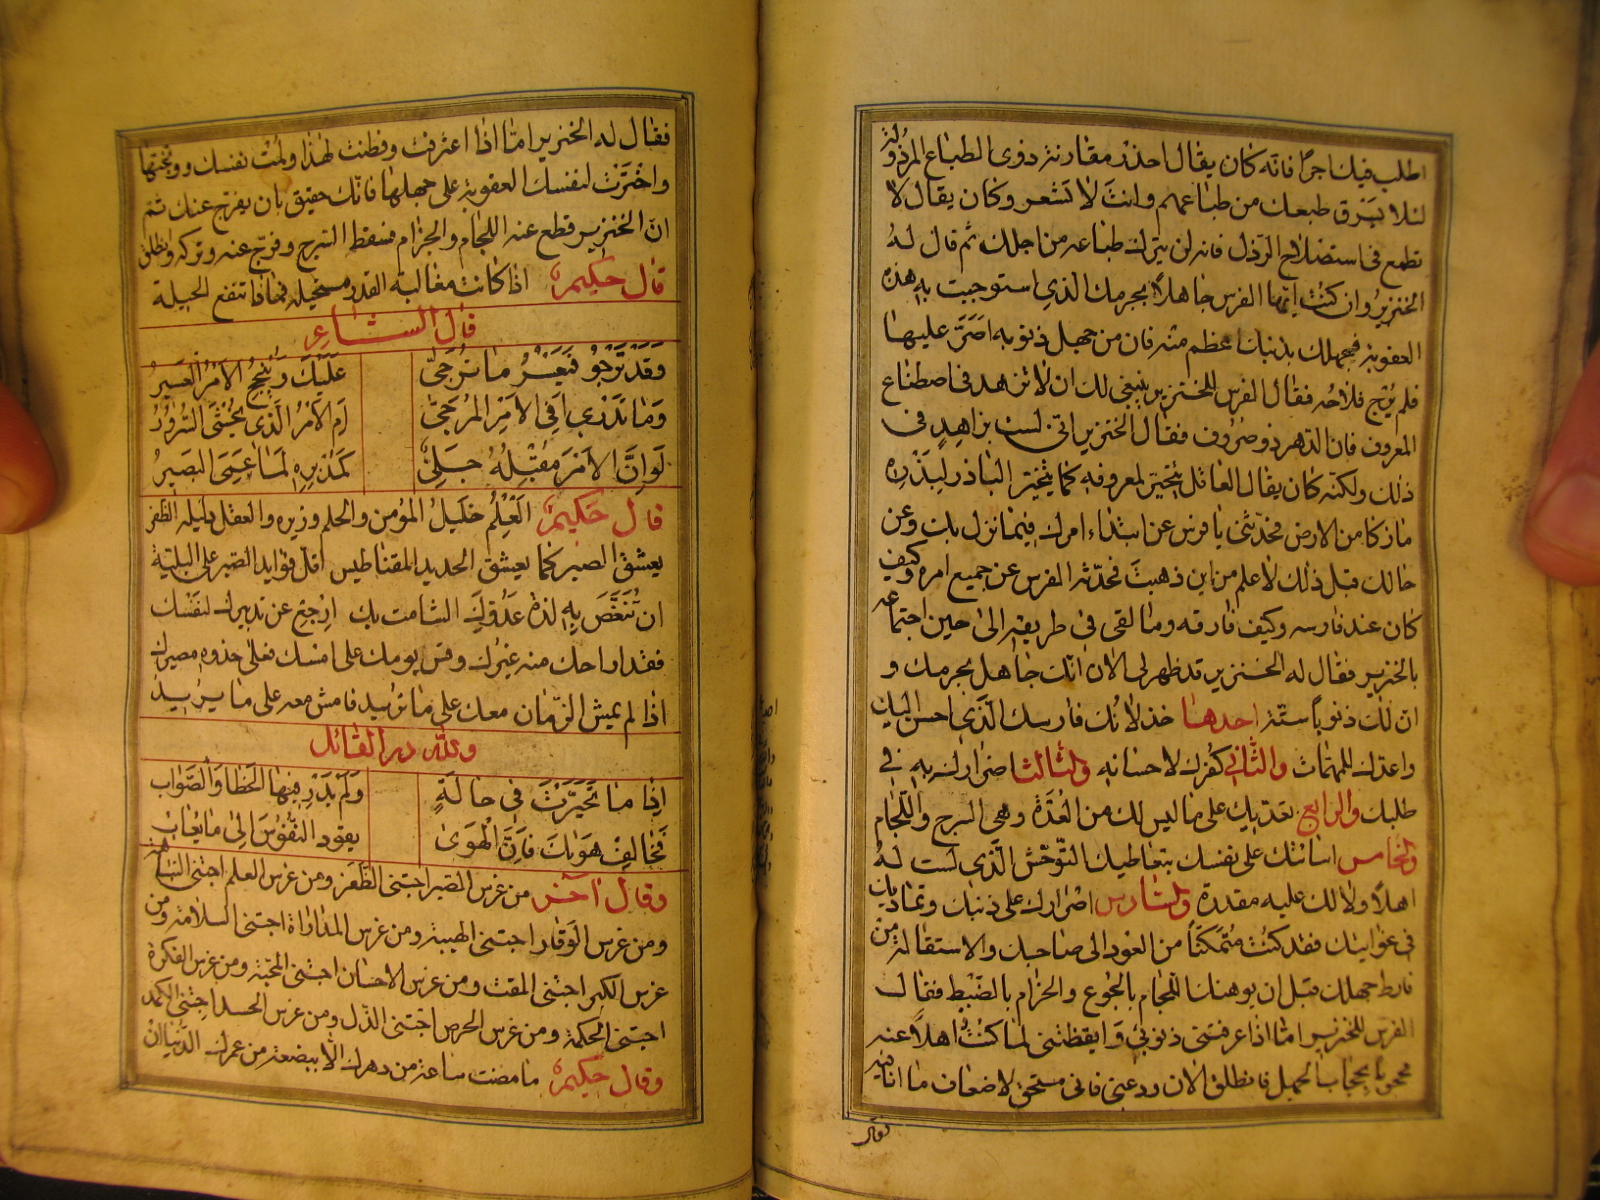 اطلب فيك اجرًا فانه كان يقال احذر مقارنة ذوى الطباع المرذولة
لئلا يسرق طبعك من طباعهم وانت لا تشعر وكان يقال لا
تطمع فى استصلاح الرذل فانه لن يترك طباعه من اجلك ثم قال له
الخنزير وان كنت ايها الفرس جاهلا بجرمك الذى استوجبت به هذه
العقوبة فجهلك بذنبك اعظم منه فان من جهل ذنوبه اصرّ عليها
فلم يرج فلاحه فقال الفرس للخنزير ينبغى لك ان لا تزهد فى اصطناع
المعروف فان الدهر ذو صروف فقال الخنزير انى لست بزاهد فى
ذلك ولكنه كان يقال العاقل يتخير لمعروفه كما يتخير الباذر لبذره
ما زكا من الارض فحدثنى يا فرس عن ابتداء امرك فيما نزل بك وعن
حالك قبل ذلك لاعلم من اين ذهبت فحدثه الفرس عن جميع امره وكيف
كان عند فارسه وكيف فارقه وما لقى فى طريقه الى حين اجتماعه
بالخنزير فقال له الخنزير قد ظهر لى الان انك جاهل بجرمك و
ان لك ذنوباً ستة احدها خذلانك فارسك الذى احسن اليك
واعدك للمهمات والثانى كفرك لاحسانه والثالث اضرارك به فى
طلبك والرابع تعديك على ما ليس لك من العدة وهى السرج واللجام
والخامس اسائتك على نفسك بتعاطيك التوحش الذى لست له
اهلًا ولا لك عليه مقدرة والسادس اصرارك على ذنبك وتماديك
فى غوايتك فقد كنت متمكنًا من العود الى صاحبك والاستقالة من
فارط جهلك قبل ان يوهنك اللجام بالجوع والحزام بالضبط فقال
الفرس للخنزير اما اذا عرفتنى ذنوبى وايقظتنى لما كنت اهلا عنه
محجوبا بحجاب الجهل فانطلق الان ودعنى فانى مستحق لاضعاف ما انا فيه
فقال
فقال له الخنزير اما اذا اعترفت وفطنت لهذا ولمت نفسك ووبختها
واخترت لنفسك العقوبة على جهلها فانك حقيق بان يفرج عنك ثم
ان الخنزير قطع عنه اللجام والحزام فسقط السرج وفرّج عنه وتركه وانطلق
قال حكيم اذا كانت مغالبة القدر مستحيله فماذا تنفع الحيلة
قال الشاعر
وقد ترجو فيعسر ما ترجّى عليك وينجح الامر العسير
وما تدرى افى الامر المرجى ام الامر الذى يخشى السرور
لو انّ الامر مقبله جلىّ كمدبره لما عيى البصير
قال حكيم العلم خليل المؤمن والحلم وزيره والعقل دليله الظفر
يعشق الصبر كما يعشق الحديد المقناطيس اقل فوايد الصبر على البلية
ان تنغّص به لذة عدوّك الشامت بك ارجع عن تدبيرك لنفسك
فقد اراحك منه غيرك وقس يومك على امسك فعلى حذوه مصيرك
اذا لم يمش الزمان معك على ما تريد فامش معه على ما يريد
ولله در القائل
اذا ما تحيّرت فى حالةٍ ولم يدر فيها الخطا والصواب
فخالف هواك فان الهوى يقود النفوس الى ما يعاب
وقال آخر من غرس الصبر اجتنى الظفر ومن غرس العلم اجتنى النباهة
ومن غرس الوقار اجتنى الهيبة ومن غرس المداراة اجتنى السلامة ومن
غرس الكبر اجتنى المقت ومن غرس الاحسان اجتنى المحبّة ومن غرس الفكرة
اجتنى الحكمة ومن غرس الحرص اجتنى الذل ومن غرس الحسد اجتنى الكمد
وقال حكيم ما مضت ساعة من دهرك الا ببضعة من عمرك الدنيا ان